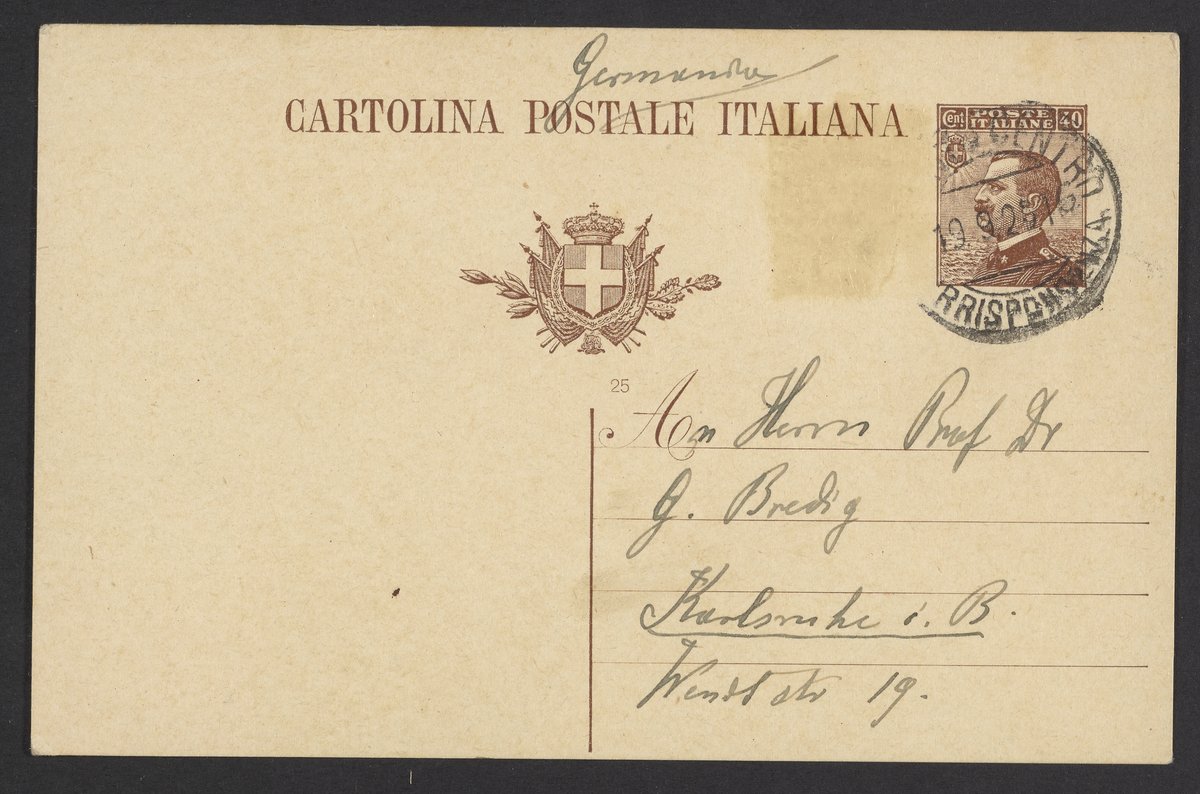 Germania
CARTOLINA POSTALE ITALIANA
Cent POSTE ITALIANE 40
CENTRO
19.9.25.16
RRISPONDENZA
25
An Herrn Prof Dr
G. Bredig
Karlsruhe i. B.
Wendtstr 19.